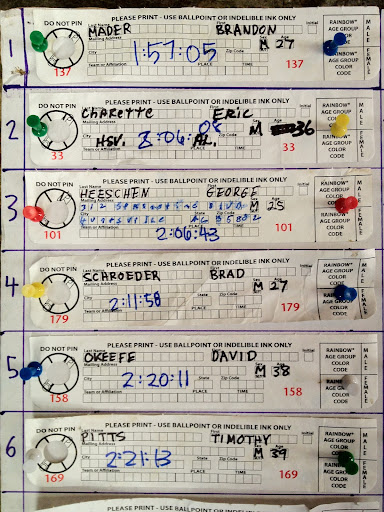 1
DO NOT PIN
PLEASE PRINT - USE BALLPOINT OR INDELIBLE INK ONLY
Last Name First Initial
MADER BRANDON
Mailing Address Sex Age
M 27
City State Zip Code
1:57:05
Team or Affiliation PLACE TIME
137 137
RAINBOW® AGE GROUP COLOR CODE
MALE FEMALE
2
DO NOT PIN
PLEASE PRINT - USE BALLPOINT OR INDELIBLE INK ONLY
Charette Eric
Mailing Address
M 36
HSV. AL.
2:06:08
Team or Affiliation PLACE TIME
33 33
RAINBOW® AGE GROUP COLOR CODE
MALE FEMALE
3
DO NOT PIN
PLEASE PRINT - USE BALLPOINT OR INDELIBLE INK ONLY
HEESCHEN GEORGE
M 25
2:06:43
101 101
RAINBOW® AGE GROUP COLOR CODE
MALE FEMALE
4
DO NOT PIN
PLEASE PRINT - USE BALLPOINT OR INDELIBLE INK ONLY
SCHROEDER BRAD
Mailing Address
M 27
City State Zip Code
2:11:58
Team or Affiliation PLACE TIME
179 179
RAINBOW® AGE GROUP COLOR CODE
MALE FEMALE
5
DO NOT PIN
PLEASE PRINT - USE BALLPOINT OR INDELIBLE INK ONLY
OKEEFE DAVID
Mailing Address
M 38
City State Zip Code
2:20:11
Team or Affiliation PLACE TIME
158 158
RAINBOW® AGE GROUP COLOR CODE
MALE FEMALE
6
DO NOT PIN
PLEASE PRINT - USE BALLPOINT OR INDELIBLE INK ONLY
PITTS TIMOTHY
Mailing Address
M 39
City State Zip Code
2:21:13
Team or Affiliation PLACE TIME
169 169
RAINBOW® AGE GROUP COLOR CODE
MALE FEMALE
PLEASE PRINT - USE BALLPOINT OR INDELIBLE INK ONLY